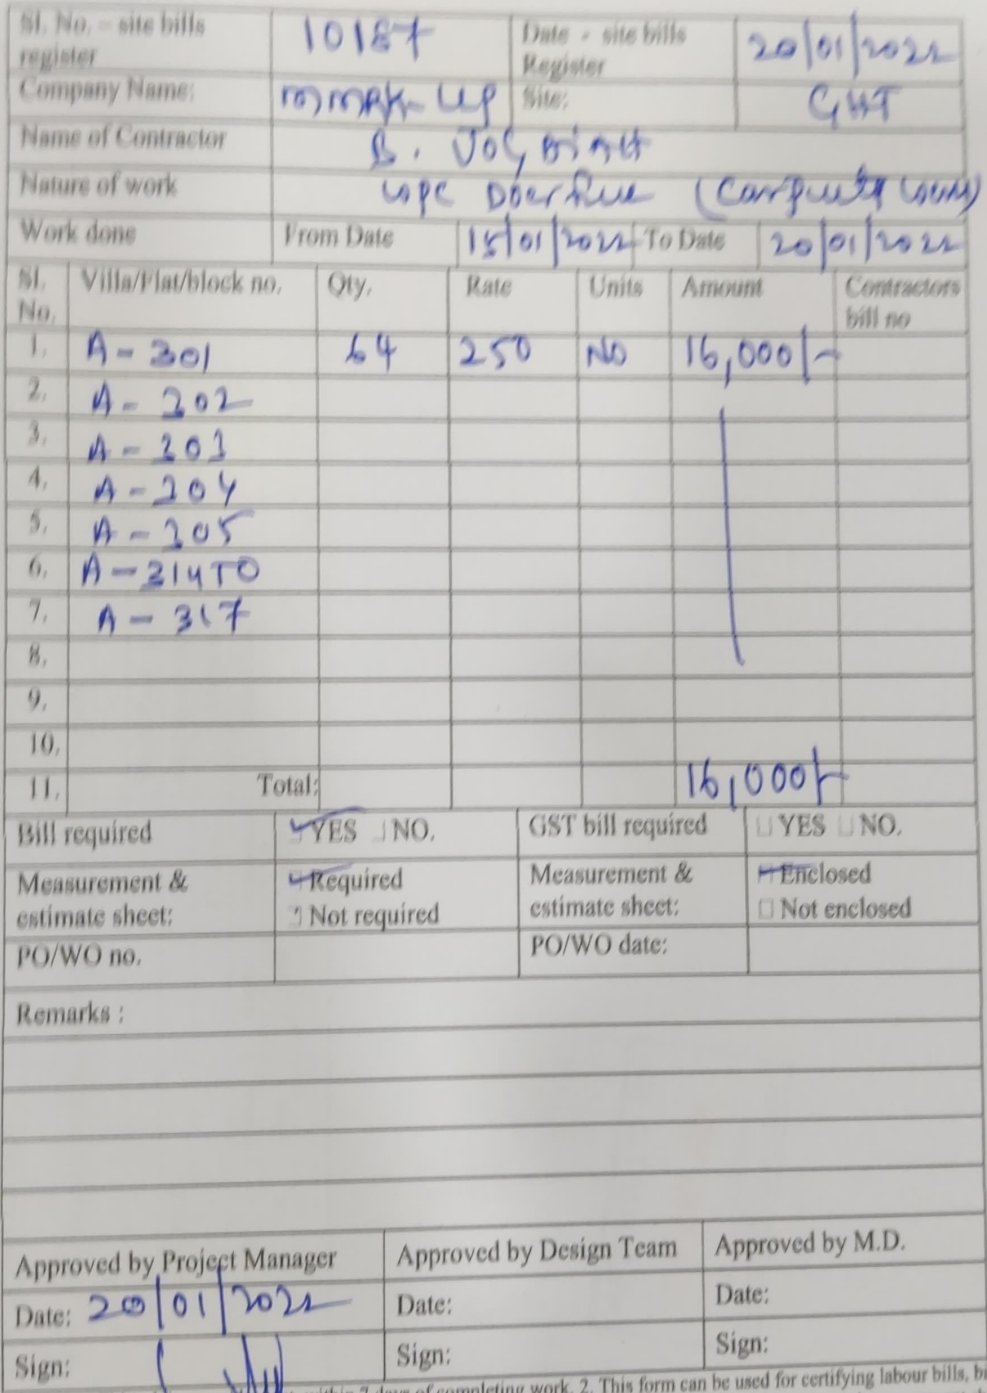 Sl. No. – site bills register 10187 Date - site bills Register 20/01/2022
Company Name: Site: GHT
Name of Contractor B.
Nature of work Door
Work done From Date 15/01/2022 To Date 20/01/2022
Sl. No. Villa/Flat/block no. Qty. Rate Units Amount Contractors bill no
1. A - 301 64 250 NO 16,000/-
2. A - 302
3. A - 303
4. A - 304
5. A - 305
6. A - 314 TO
7. A - 317
8.
9.
10.
11. Total: 16,000/-
Bill required YES NO. GST bill required YES NO.
Measurement & estimate sheet: Required Not required Measurement & estimate sheet: Enclosed Not enclosed
PO/WO no. PO/WO date:
Remarks :
Approved by Project Manager Approved by Design Team Approved by M.D.
Date: 20/01/2022 Date: Date:
Sign: Sign: Sign:
7 days of completing work. 2. This form can be used for certifying labour bills,